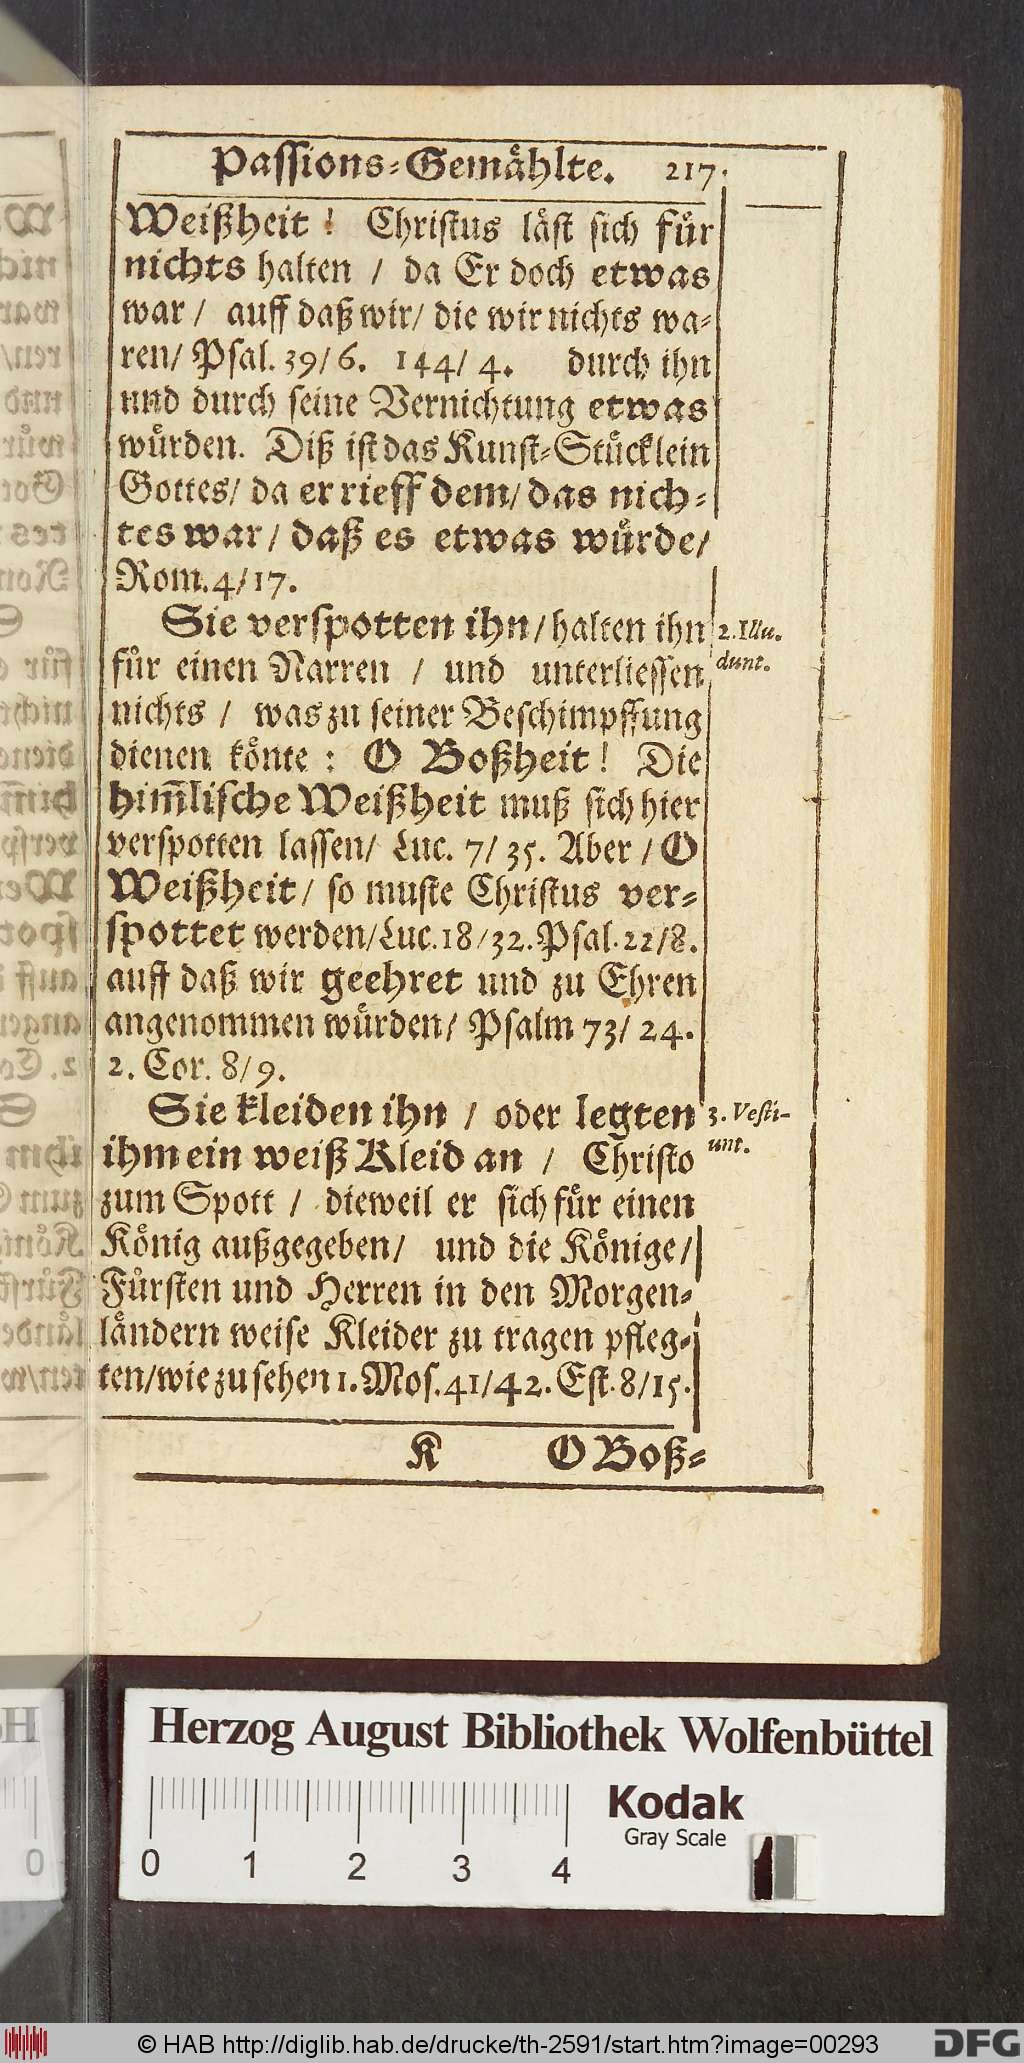 Passions-Gemählte. 217.
Weißheit! Christus läst sich für
nichts halten / da Er doch etwas
war / auff daß wir / die wir nichts wa-
ren / Psal. 39/6. 144/4. durch ihn
und durch seine Vernichtung etwas
würden. Diß ist das Kunst-Stücklein
Gottes / da er rieff dem / das nich-
tes war / daß es etwas würde /
Rom. 4/17.
Sie verspotten ihn / halten ihn
2. Illu-
für einen Narren / und unterliessen
dunt.
nichts / was zu seiner Beschimpffung
dienen könte: O Boßheit! Die
him̅lische Weißheit muß sich hier
verspotten lassen / Luc. 7/35. Aber / O
Weißheit / so muste Christus ver-
spottet werden / Luc. 18/32. Psal. 22/8.
auff daß wir geehret und zu Ehren
angenommen würden / Psalm 73/24.
2. Cor. 8/9.
Sie kleiden ihn / oder legten
3. Vesti-
ihm ein weiß Kleid an / Christo
unt.
zum Spott / dieweil er sich für einen
König außgegeben / und die Könige /
Fürsten und Herren in den Morgen-
ländern weise Kleider zu tragen pfleg-
ten / wie zu sehen 1. Mos. 41/42. Est. 8/15.
K O Boß-
Herzog August Bibliothek Wolfenbüttel
Kodak
Gray Scale
0 1 2 3 4
© HAB http://diglib.hab.de/drucke/th-2591/start.htm?image=00293
DFG